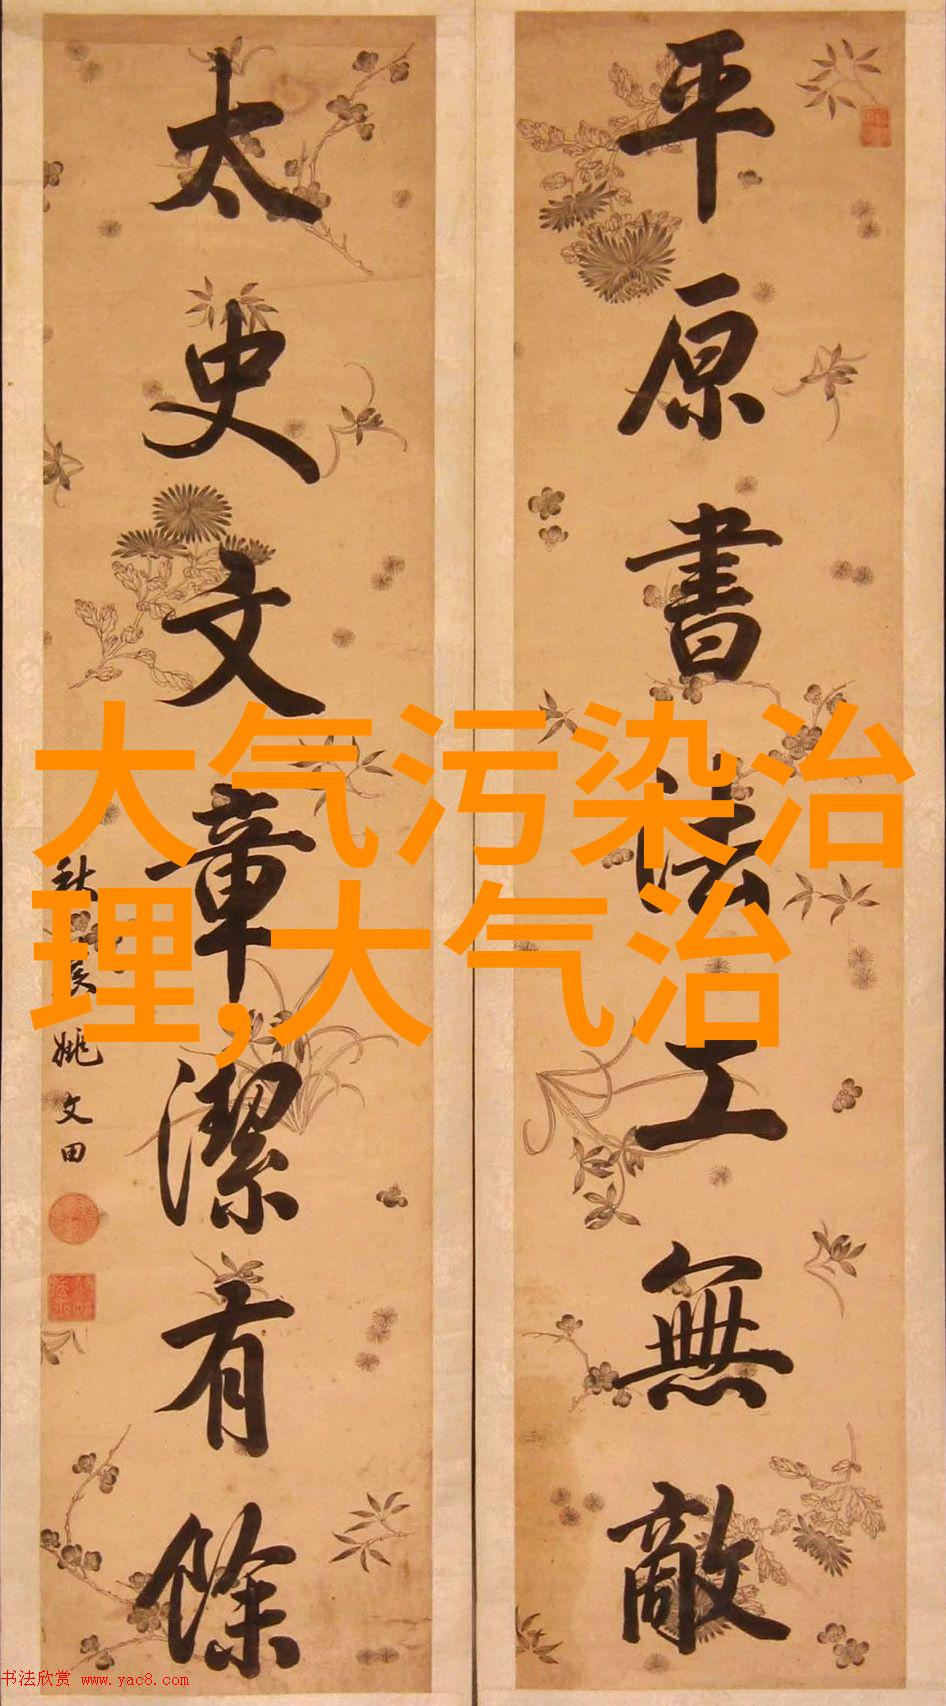 平原書法工無敵
太史文章潔有餘
秋農姚文田
大气污染治
理,大气治
书法欣赏 www.yac8.com